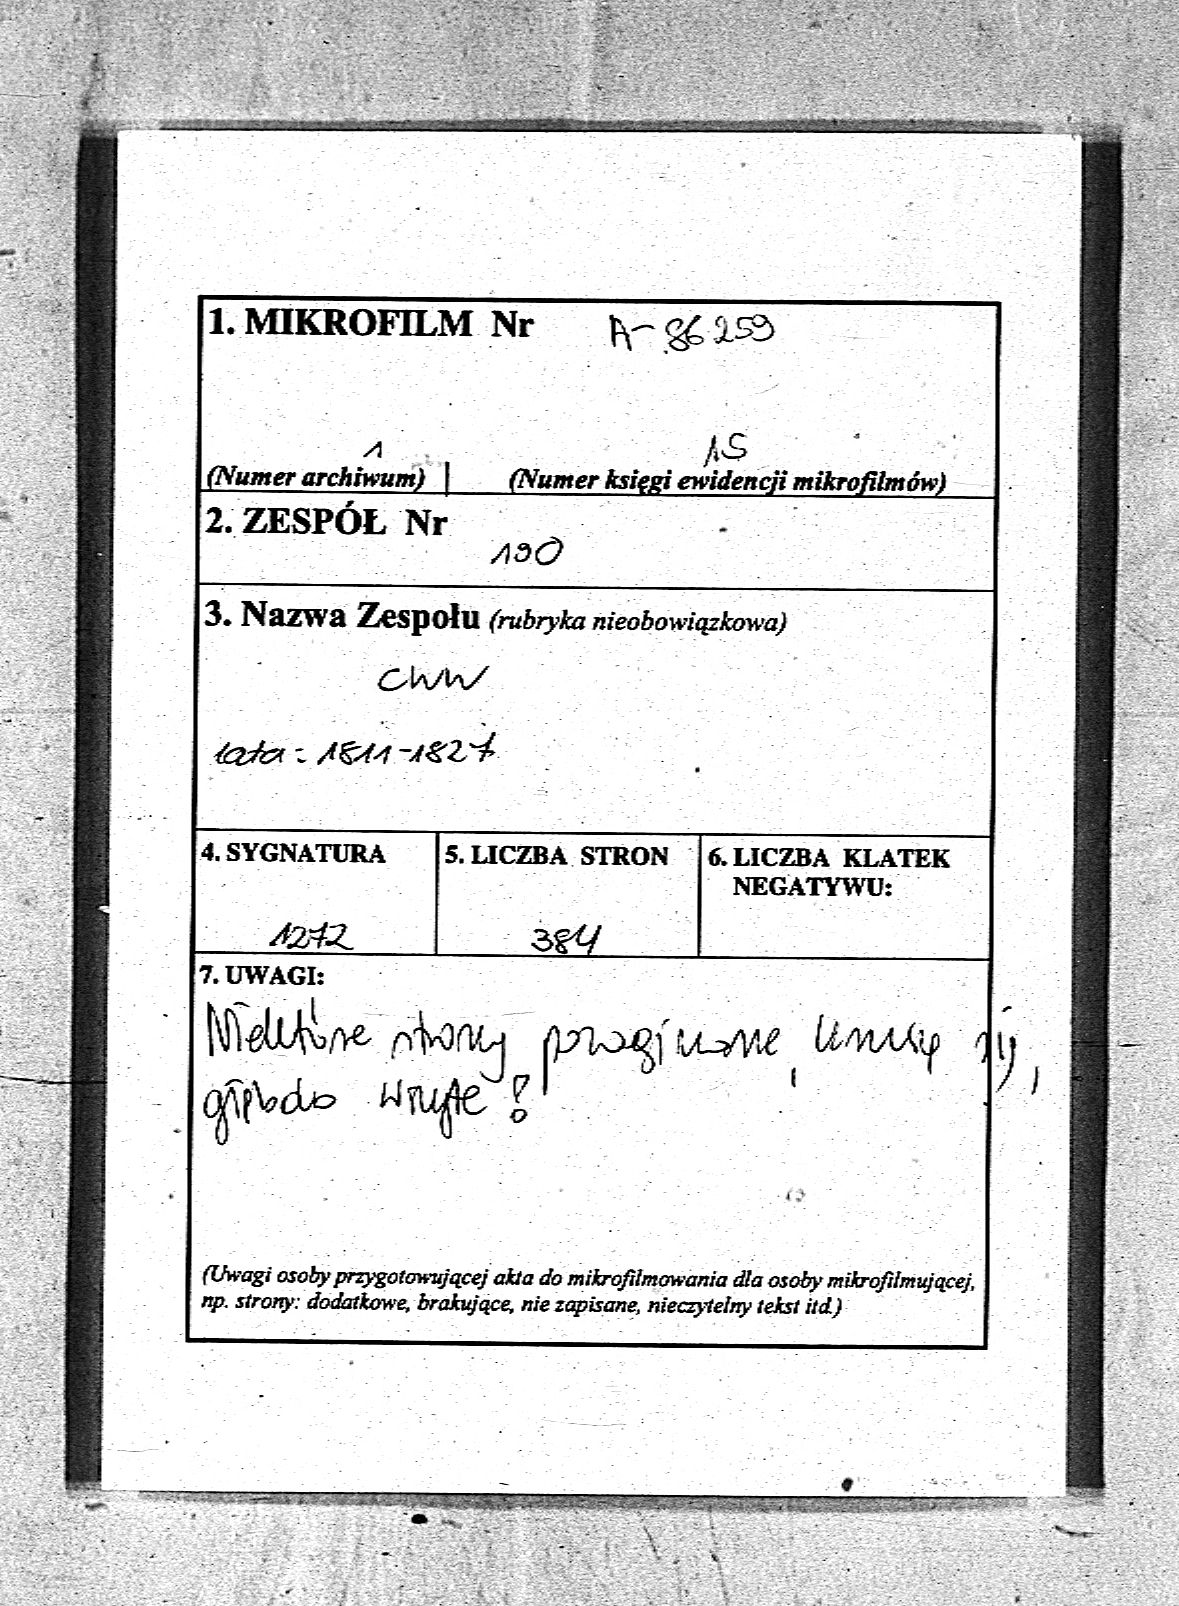 1. MIKROFILM Nr A-86259
1 15
(Numer archiwum) | (Numer księgi ewidencji mikrofilmów)
2. ZESPÓŁ Nr
190
3. Nazwa Zespołu (rubryka nieobowiązkowa)
CWW
lata: 1811-1827
4. SYGNATURA 5. LICZBA STRON 6. LICZBA KLATEK
NEGATYWU:
1272 384
7. UWAGI:
Niektóre strony,
głęboko wszyte!
(Uwagi osoby przygotowującej akta do mikrofilmowania dla osoby mikrofilmującej,
np. strony: dodatkowe, brakujące, nie zapisane, nieczytelny tekst itd.)